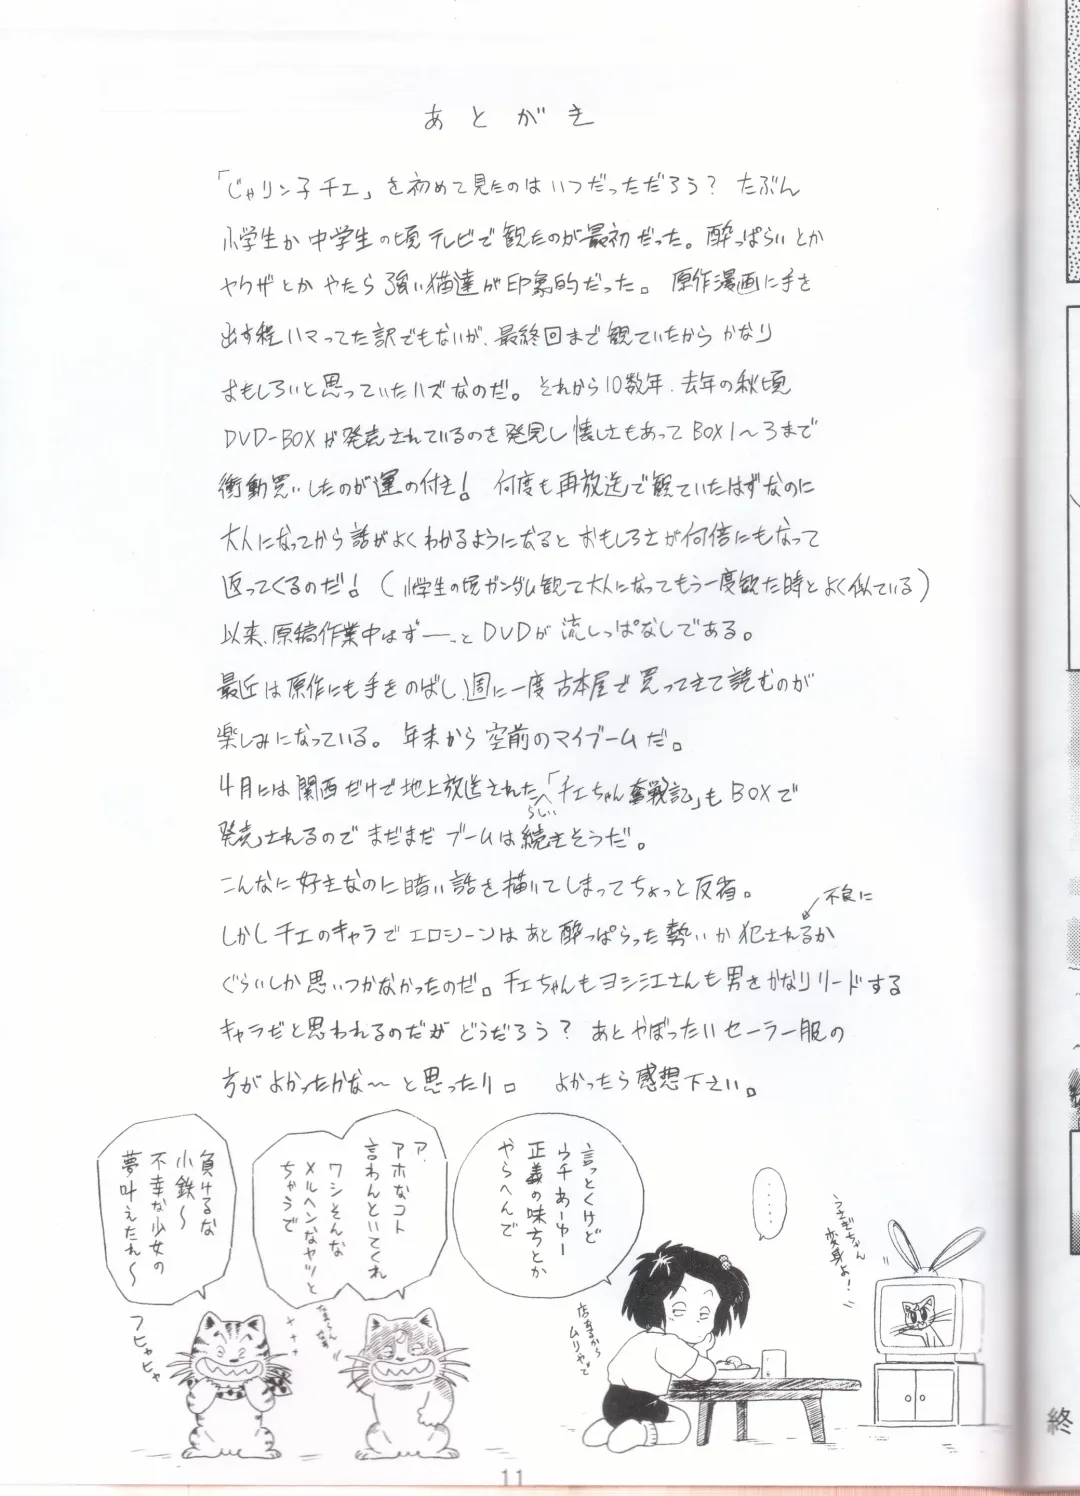 あとがき
「じゃリン子チエ」を初めて見たのはいつだっただろう？ たぶん
小学生か中学生の頃テレビで観たのが最初だった。酔っぱらいとか
ヤクザとかやたら強い猫達が印象的だった。原作漫画に手を
出す程ハマってた訳でもないが、最終回まで観ていたからかなり
おもしろいと思っていたハズなのだ。それから10数年、去年の秋頃
DVD-BOXが発売されているのを発見し懐しさもあってBOX1～3まで
衝動買いしたのが運の付き！ 何度も再放送で観ていたはずなのに
大人になってから話がよくわかるようになるとおもしろさが何倍にもなって
返ってくるのだ！（小学生の頃ガンダム観て大人になってもう一度観た時とよく似ている）
以来、原稿作業中はずーーっとDVDが流しっぱなしである。
最近は原作にも手をのばし、週に一度古本屋で買ってきて読むのが
楽しみになっている。年末から空前のマイブームだ。
4月には関西だけで地上放送された「チエちゃん奮戦記」もBOXで
らしい
発売されるのでまだまだブームは続きそうだ。
こんなに好きなのに暗い話を描いてしまってちょっと反省。
不良に
しかしチエのキャラでエロシーンはあと酔っぱらった勢いか犯されるか
ぐらいしか思いつかなかったのだ。チエちゃんもヨシ江さんも男をかなりリードする
キャラだと思われるのだがどうだろう？ あとやぼったいセーラー服の
方がよかったかな～と思ったり。 よかったら感想下さい。
言っとくけど
ウチあーゆー
正義の味方とか
やらへんで
ア、
アホなコト
言わんといてくれ
ワシそんな
メルヘンなヤツと
ちゃうで
負けるな
小鉄～
不幸な少女の
夢叶えたれ～
‥‥‥
うさぎちゃん
変身よ！
店あるから
ムリやで
たまらんなあ
フヒャヒャ
11
終